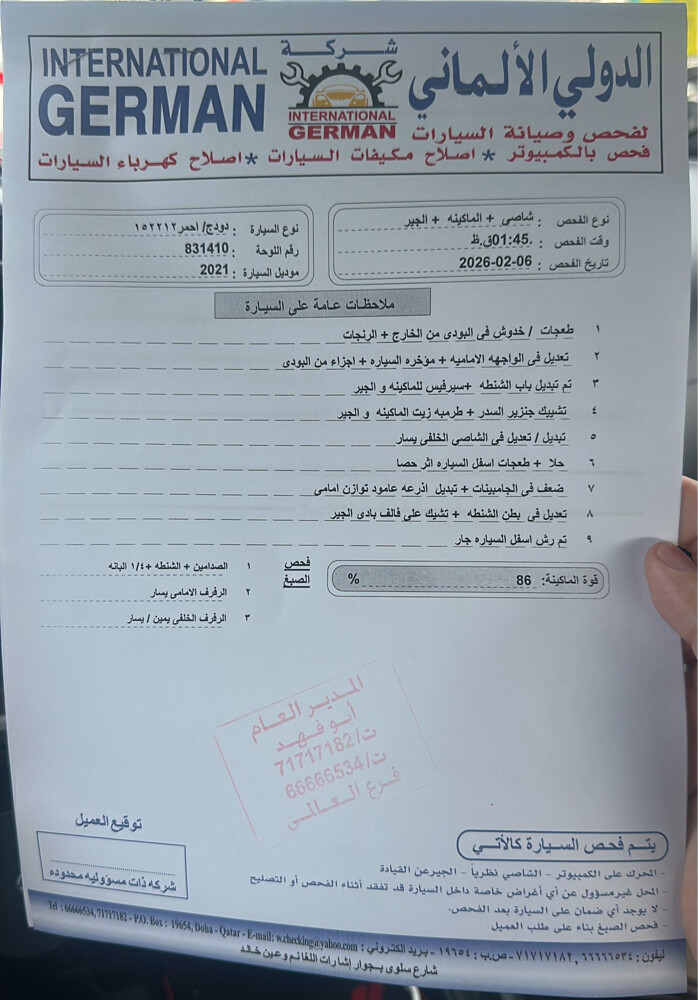 INTERNATIONAL
GERMAN
شركة
INTERNATIONAL
GERMAN
الدولي الألماني
لفحص وصيانة السيارات
فحص بالكمبيوتر * اصلاح مكيفات السيارات * اصلاح كهرباء السيارات
نوع الفحص : شاصى + الماكينه + الجير
وقت الفحص : .01:45ق.ظ
تاريخ الفحص : 2026-02-06
نوع السيارة : دودج/ احمر١٥٢٢١٢
رقم اللوحة : 831410
موديل السيارة : 2021
ملاحظات عامة على السيارة
١ طعجات / خدوش فى البودى من الخارج + الرنجات
٢ تعديل فى الواجهه الاماميه + مؤخره السياره + اجزاء من البودى
٣ تم تبديل باب الشنطه +سيرفيس للماكينه و الجير
٤ تشييك جنزير السدر + طرمبه زيت الماكينه و الجير
٥ تبديل / تعديل فى الشاصى الخلفى يسار
٦ حلا + طعجات اسفل السياره اثر حصا
٧ ضعف فى الجامبينات + تبديل اذرعه عامود توازن امامى
٨ تعديل فى بطن الشنطه + تشيك على فالف بادى الجير
٩ تم رش اسفل السياره جار
قوة الماكينة: 86 %
فحص الصبغ
١ الصدامين + الشنطه +١/٤ البانه
٢ الرفرف الامامى يسار
٣ الرفرف الخلفى يمين / يسار
المدير العام
أبو فهد
ت/71717182
ت/66666534
فرع العالمي
توقيع العميل
شركه ذات مسؤوليه محدوده
يتم فحص السيارة كالأتي
- المحرك على الكمبيوتر - الشاصي نظرياً - الجير عن القيادة
- المحل غير مسؤول عن أي أغراض خاصة داخل السيارة قد تفقد أثناء الفحص أو التصليح
- لا يوجد أي ضمان على السيارة بعد الفحص.
- فحص الصبغ بناء على طلب العميل
ليفون : ٦٦٦٦٦٥٣٤, ٧١٧١٧١٨٢ - ص.ب : ١٩٦٥٤ - بريد الكتروني : Tel : 66666534, 71717182 - P.O. Box : 19654, Doha - Qatar - E-mail: w.checking@yahoo.com
شارع سلوى بجوار إشارات اللقانم وعين خالد